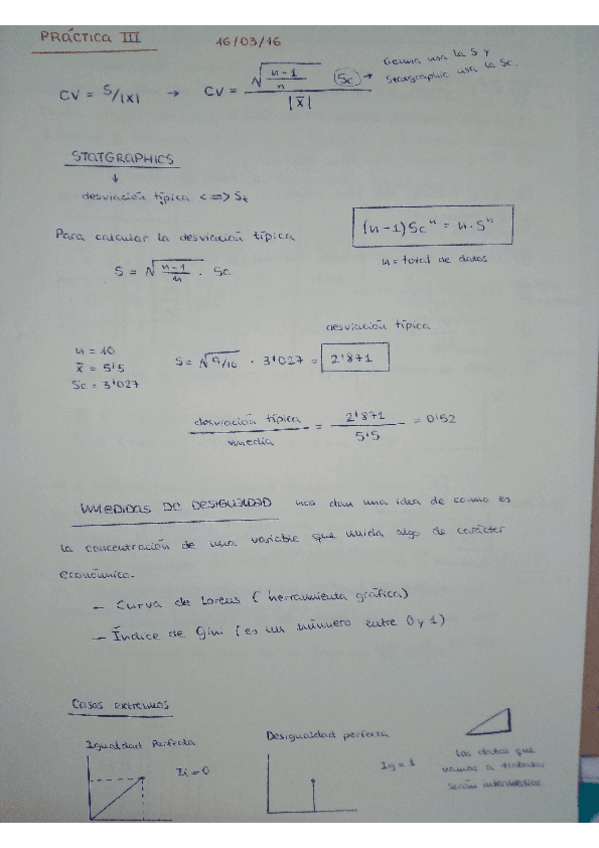 PRÁCTICA III 16/03/16
CV = S/|X| → CV = √(n-1/n) Sc / |x̄| → Gemma usa la S y
Statgraphic usa la Sc.
STATGRAPHICS
↓
desviación típica <=> St
Para calcular la desviación típica
(n-1)Sc" = n·S"
S = √(n-1/n) · Sc
n = total de datos
desviación típica
n = 10
x̄ = 5'5
Sc = 3'027
S = √9/10 · 3'027 = 2'871
desviación típica / media = 2'871 / 5'5 = 0'52
MEDIDAS DE DESIGUALDAD nos dan una idea de como es
la concentración de una variable que mida algo de carácter
económico.
– Curva de Lorens (herramienta gráfica)
– Índice de Gini (es un número entre 0 y 1)
Casos extremos
Igualdad Perfecta
=0
Desigualdad perfecta
Ig = 1
Los datos que
vamos a trabajar
serán intermedios.